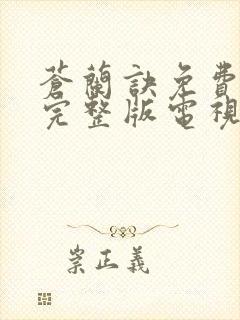 蒼蘭訣免費
完整版電視
崇正義